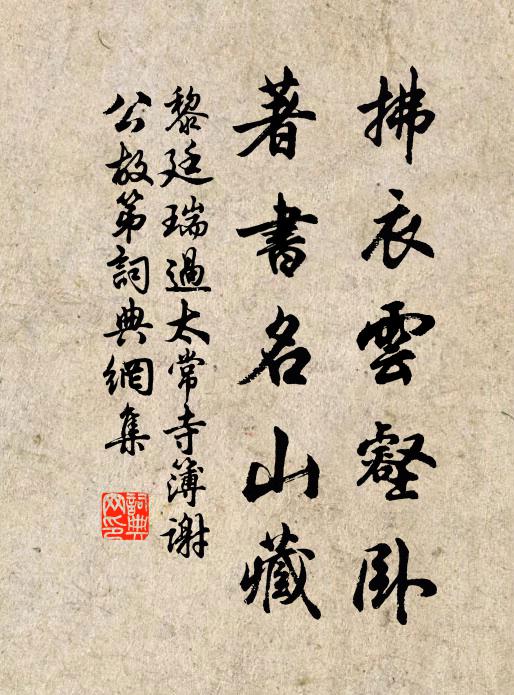 拂衣雲壑臥
著書名山藏
黎廷瑞過太常寺簿謝
公故第詞典網集
詞典網印